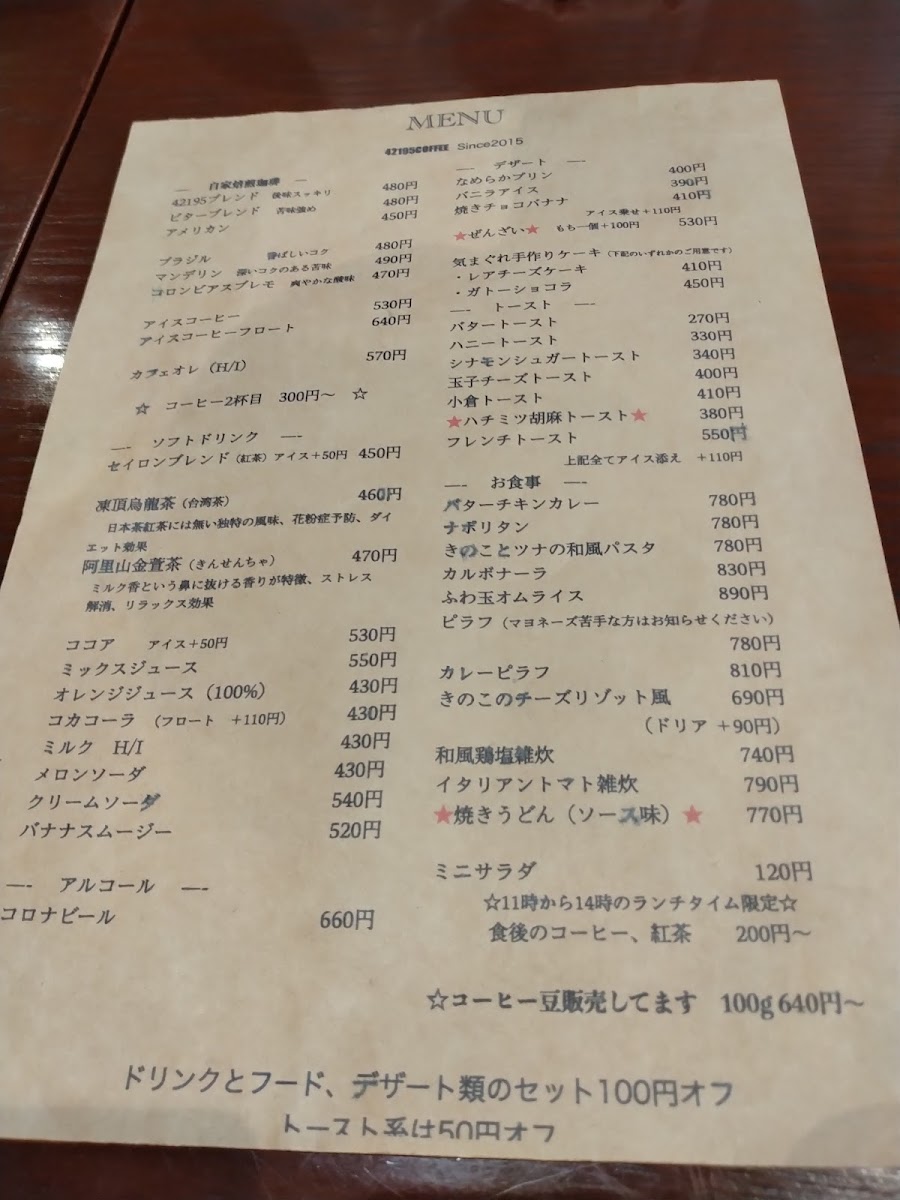 MENU
42195COFFEE Since2015
―- 自家焙煎珈琲 ―
42195ブレンド 後味スッキリ 480円
ビターブレンド 苦味強め 480円
アメリカン 450円
ブラジル 香ばしいコク 480円
マンデリン 深いコクのある苦味 490円
コロンビアスプレモ 爽やかな酸味 470円
アイスコーヒー 530円
アイスコーヒーフロート 640円
カフェオレ（H/I） 570円
☆ コーヒー2杯目 300円～ ☆
―- ソフトドリンク ―-
セイロンブレンド（紅茶）アイス＋50円 450円
凍頂烏龍茶（台湾茶） 460円
日本茶紅茶には無い独特の風味、花粉症予防、ダイ
エット効果
阿里山金萱茶（きんせんちゃ） 470円
ミルク香という鼻に抜ける香りが特徴、ストレス
解消、リラックス効果
ココア アイス＋50円 530円
ミックスジュース 550円
オレンジジュース（100%） 430円
コカコーラ （フロート ＋110円） 430円
ミルク H/I 430円
メロンソーダ 430円
クリームソーダ 540円
バナナスムージー 520円
―- アルコール ―-
コロナビール 660円
―- デザート ―-
なめらかプリン 400円
バニラアイス 390円
焼きチョコバナナ 410円
アイス乗せ＋110円
★ぜんざい★ もち一個＋100円 530円
気まぐれ手作りケーキ（下記のいずれかのご用意です）
・レアチーズケーキ 410円
・ガトーショコラ 450円
―- トースト ―-
バタートースト 270円
ハニートースト 330円
シナモンシュガートースト 340円
玉子チーズトースト 400円
小倉トースト 410円
★ハチミツ胡麻トースト★ 380円
フレンチトースト 550円
上記全てアイス添え ＋110円
―- お食事 ―-
バターチキンカレー 780円
ナポリタン 780円
きのことツナの和風パスタ 780円
カルボナーラ 830円
ふわ玉オムライス 890円
ピラフ（マヨネーズ苦手な方はお知らせください）
780円
カレーピラフ 810円
きのこのチーズリゾット風 690円
（ドリア ＋90円）
和風鶏塩雑炊 740円
イタリアントマト雑炊 790円
★焼きうどん（ソース味）★ 770円
ミニサラダ 120円
☆11時から14時のランチタイム限定☆
食後のコーヒー、紅茶 200円～
☆コーヒー豆販売してます 100g 640円～
ドリンクとフード、デザート類のセット100円オフ
トースト系は50円オフ